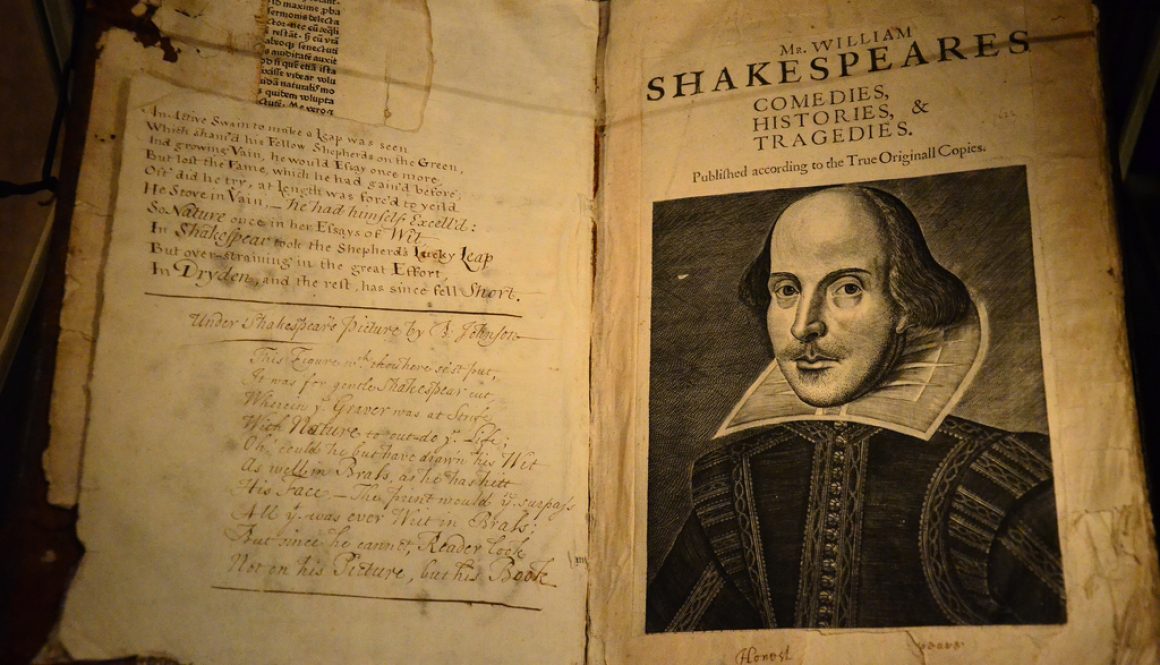 id maxime
sermonis delecta
senectuti
auxit
ista
videar volu
quidem volupta
An Active Swain to make a Leap was seen
Which sham'd his Fellow Shepherds on the Green,
And growing Vain, he would Essay once more,
But lost the Fame, which he had gain'd before;
Oft did he try, at Length was forc'd to yeild
He Stove in Vain,— he had himself Excell'd:
So Nature once in her Essays of Wit,
In Shakespear took the Shepherd's Lucky Leap
But over-straining in the great Effort,
In Dryden, and the rest, has since fell Short.
Under Shakespears Picture by B. Johnson
This Figure wch. thou here seest put,
It was for gentle Shakespear cut,
Wherein ye. Graver was at Strife,
With Nature to out-do ye. Life;
Oh! could he but have drawn his Wit
As well in Brass, as he has hitt
His Face,— The print would yn. surpass
All yt. was ever Writ in Brass;
But since he cannot, Reader look
Not on his Picture, but his Book
Mr. WILLIAM
SHAKESPEARES
COMEDIES,
HISTORIES, &
TRAGEDIES.
Published according to the True Originall Copies.
Honest